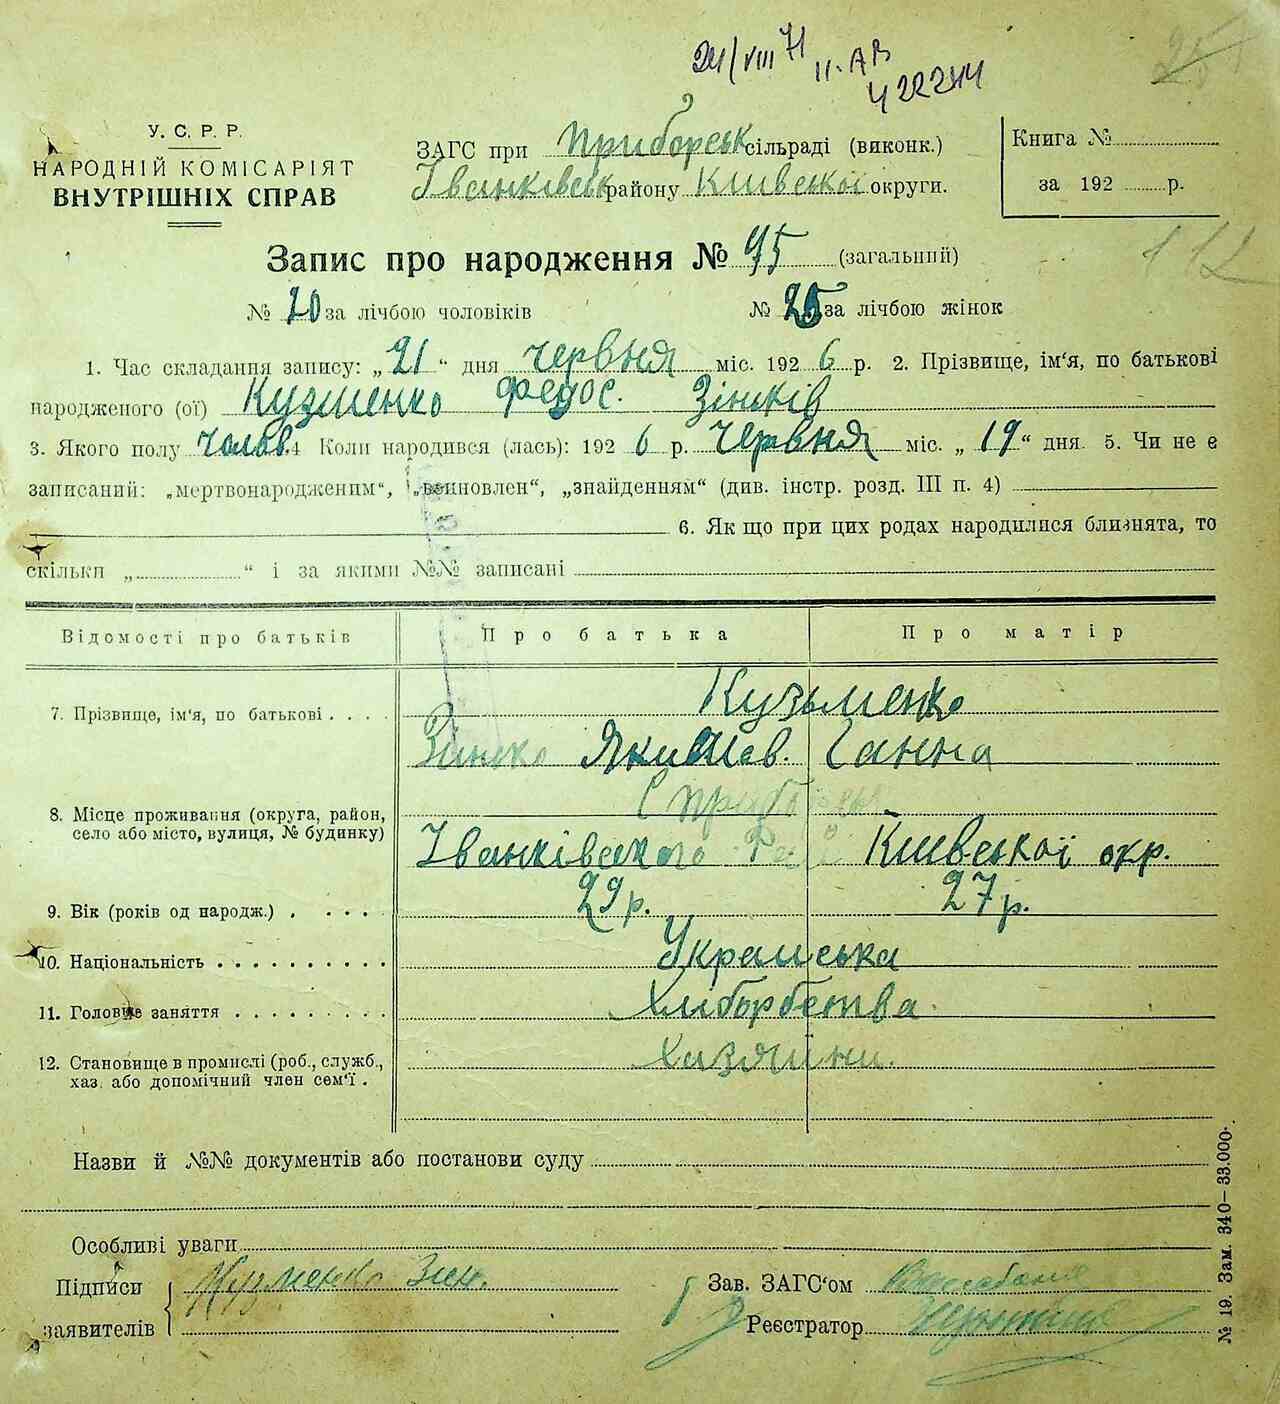 24/VIII 71
II-АВ
422244
25
У. С. Р. Р.
НАРОДНІЙ КОМІСАРІЯТ
ВНУТРІШНІХ СПРАВ
ЗАГС при Приборськ сільраді (виконк.)
Іванківськ району Київської округи.
Книга №
за 192 р.
Запис про народження № 45 (загальний)
112
№ 20 за лічбою чоловіків
№ 25 за лічбою жінок
1. Час складання запису: „21“ дня червня міс. 192 6 р. 2. Прізвище, ім'я, по батькові
народженого (ої) Кузменко Федос. Зіньків
3. Якого полу чолов. 4 Коли народився (лась): 192 6 р. червня міс. „19“ дня. 5. Чи не є
записаний: „мертвонародженим“, „вспновлен“, „знайденням“ (див. інстр. розд. III п. 4)
6. Як що при цих родах народилися близнята, то
скільки „ “ і за якими №№ записані
Відомості про батьків Про батька Про матір
Кузьменко
7. Прізвище, ім'я, по батькові
Зінько Якимов. Ганна
С Приборськ
8. Місце проживання (округа, район,
село або місто, вулиця, № будинку)
Іванківського Київської окр.
9. Вік (років од народж.) 29 р. 27 р.
10. Національність Українська
11. Головне заняття Хліборобства
12. Становище в промислі (роб., служб.,
хаз. або допомічний член сем'ї. Хазяіни.
Назви й №№ документів або постанови суду
Особливі уваги
Підписи
заявителів
Кузменко Зин.
Зав. ЗАГС'ом
Реєстратор
№ 19. Зам. 340—33.000.